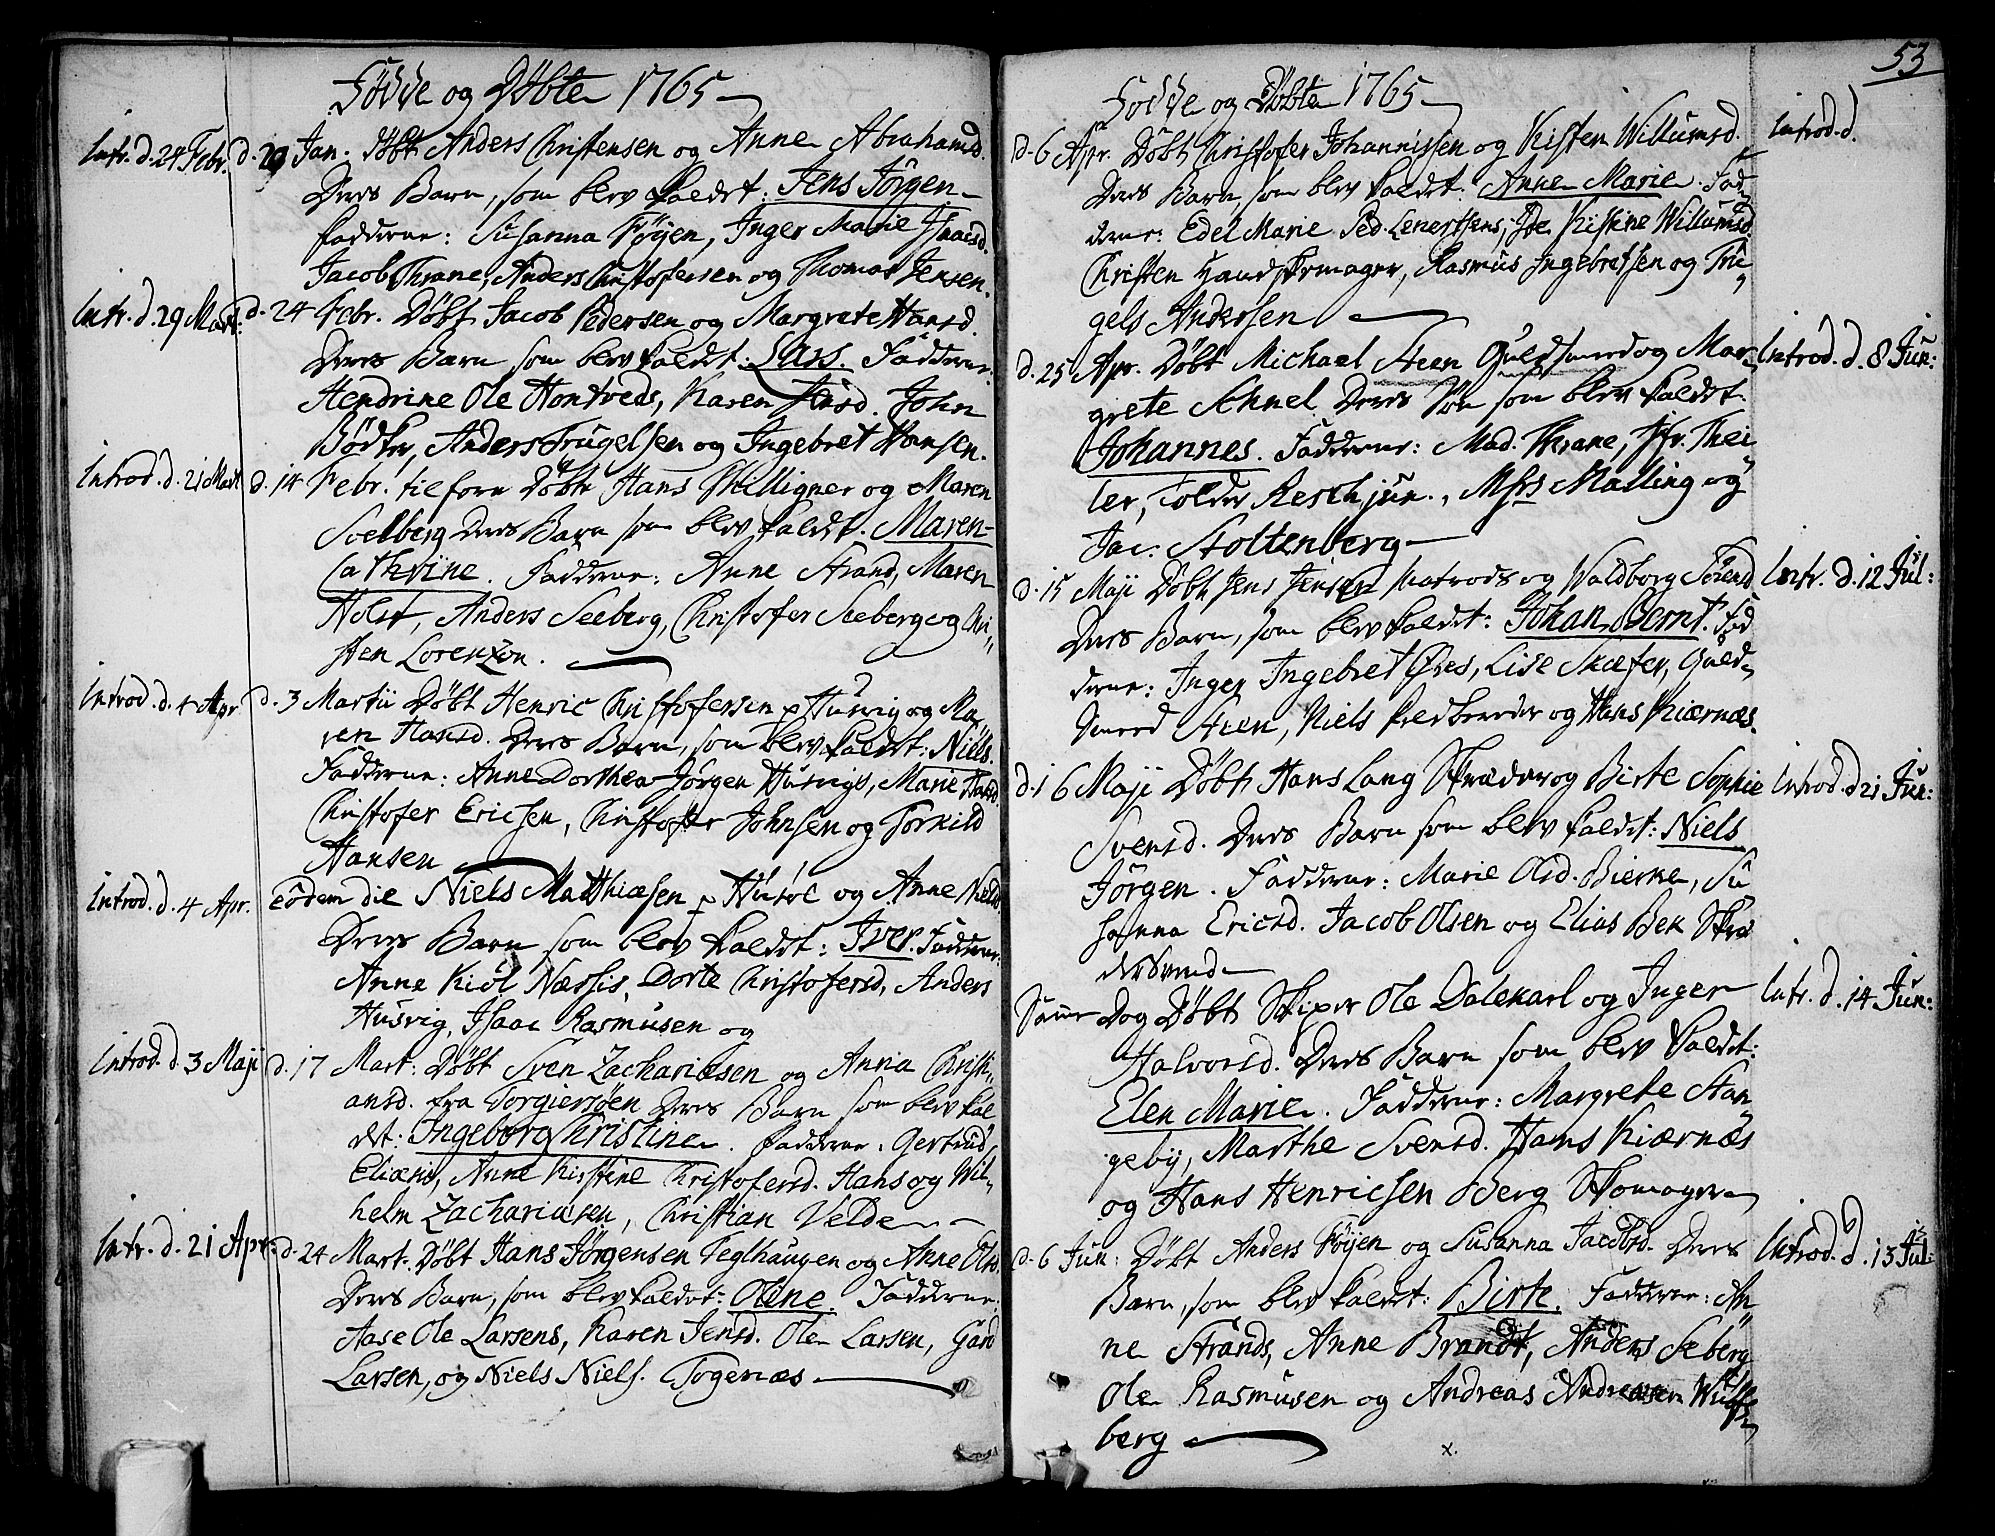 Födde og Döbte 1765
Intr. d. 24 Febr. d. 29 Jan. Döbt Anders Christensen og Anne Abrahamsd.
Deres Barn, som blev kaldet: Jens Jörgen
Fadderne: Susanna Föyen, Inger Marie Isaacsd.
Jacob Thrane, Anders Christofersen og Thomas Jensen.
Intr. d. 29 Mart: d. 24 Febr. Döbt Jacob Pedersen og Margrete Hansd.
Deres Barn som blev kaldet: Lars. Fadderne:
Hendrine Ole Hontveds, Karen Hansd. John
Bödker, Anders Trugelsen og Ingebret Hansen.
Introd. d. 21 Mart d. 14 Febr. tilforn Döbt Hans Skilligner og Maren
Svelberg Deres Barn som blev kaldt. Maren
Cathrine. Fadderne: Anne Strand, Maren
Holst, Anders Seeberg, Christofer Seeberg og Chri-
sten Lorenzon.
Introd. d. 4 Apr. d. 3 Martii Döbt Henric Christofersen p Husvig og Ma-
ren Hansd. Deres Barn, som blev kaldet: Niels.
Fadderne: Anne Dorthea Jörgen Husvigs, Marie Hansd
Christofer Ericsen, Christoffer Johnsen og Torkild
Hansen
Introd. d. 4 Apr. eodem die Niels Matthiæsen p Husöe og Anne Nielsd.
Deres Barn som blev kaldet: Iver. Fadderne:
Anne Kiöl Næssis, Dorte Christofersd, Anders
Husvig, Isaac Rasmusen og
Introd. d. 3 Maji d. 17 Mart: Döbt Sven Zachariæsen og Anna Christi-
ansd. fra Torgiersöen Deres Barn som blev kal
det: Ingeborg Christine. Fadderne: Gertrud
Eliæsd, Anne Kirstine Christofersd. Hans og Wil-
helm Zachariasen, Christian Velde
Intr. d. 21 Apr: d. 24 Mart. Döbt Hans Jörgensen Teglhaugen og Anne Olsd.
Deres Barn, som blev kaldet: Oline. Fadderne:
Aase Ole Larsens, Karen Jensd. Ole Larsen, Gard
Larsen, og Niels Niels. Togenæs
53
Födde og Döbte 1765
d. 6 Apr. Döbt Christofer Johannissen og Kisten Willumsd. Introd. d.
Deres Barn, som blev kaldet. Anne Marie. Fad-
derne: Edel Marie Ped. Lenertsens, Kistine Willumsd.
Christen Handskemager, Rasmus Ingebretsen og Tru-
gels Andersen
d. 25 Apr. Döbt Michael Steen Guldsmed og Mar- Introd. d. 8 Jun:
grete Schnel Deres Sön som blev kaldet.
Johannes. Fadderne: Mad. Thrane, Jfr. Thei-
ler, Tolder Resch jun., Mssr Malling og
Jac: Stoltenberg
d. 15 Maji Döbt Jens Jensen Matrods og Waldborg Sörensd Intr. d. 12 Jul:
Deres Barn, som blev kaldet: Johan Bernt. Fad
derne: Inger Ingebret Öres, Lise Skæfer, Guld-
smed Steen, Niels Feldbereder og Hans Kiærnæs.
d. 16 Maji Döbt Hans Lang Skræder og Birte Sophie Introd. d 21 Jun:
Svensd. Deres Barn som blev kaldet: Niels
Jörgen. Fadderne: Marie Olsd. Bierke, Su
sanna Ericsd. Jacob Olsen og Elias Bek Skræ
dersvend
Samme Dag Döbt Skiper Ole Dalekarl og Inger Intr. d. 14 Jun:
Halvorsd. Deres Barn som blev kaldet:
Elen Marie. Fadderne: Margrete Stan-
geby, Marthe Svensd. Hans Kiærnæs
og Hans Henricsen Berg Skomager
d. 6 Jun: Döbt Anders Föyen og Susanna Jacobsd. Deres Introd. d. 13 Jul:
Barn, som blev kaldet: Birte. Fadderne: An-
ne Strands, Anne Brandt, Anders Seberg
Ole Rasmusen og Andreas Andreasen Wulfs-
berg
x.